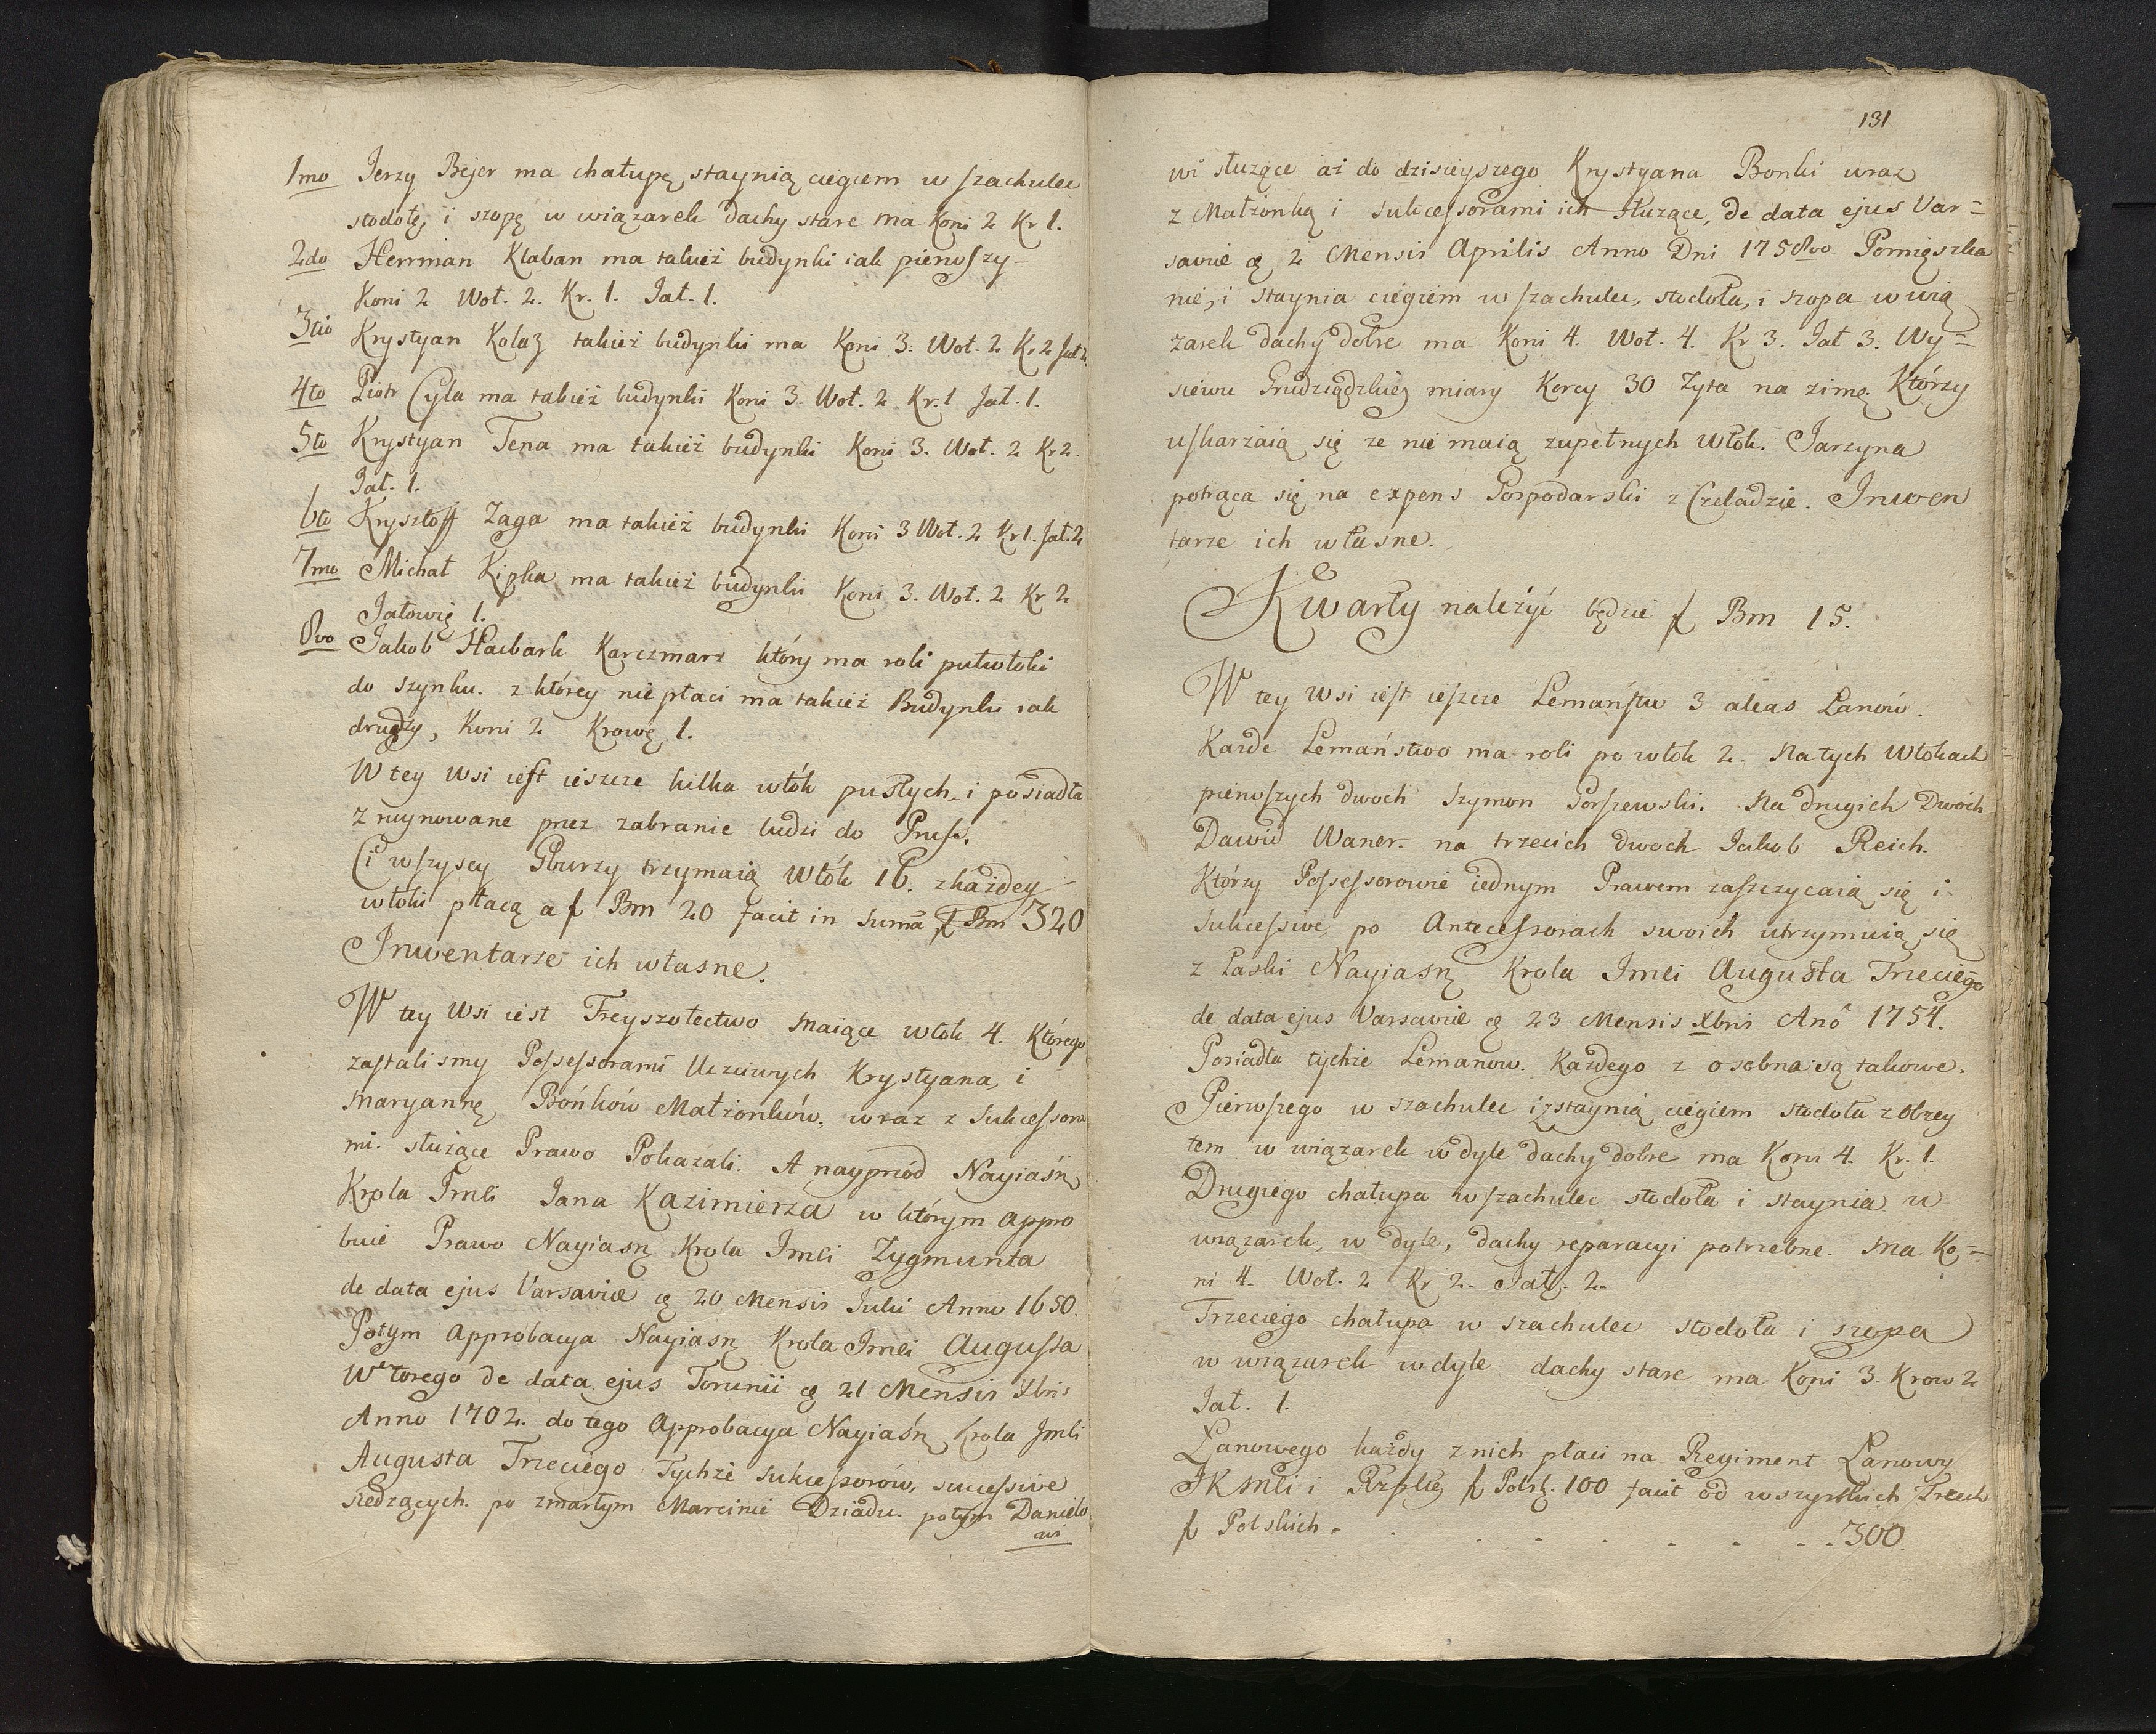 1mo Jerzy Bejer ma chałupę, staynią ciegiem w szachulec
stodołę, i szopę w wiązarek dachy stare ma Koni 2 Kr 1.
2do Herrman Klaban ma takież budynki iak pierwszy-
Koni 2 Woł. 2. Kr. 1. Jał. 1.
3tio Krystyan Kolaz takież budynki ma Koni 3. Woł. 2 Kr 2 Jał 2.
4to Piotr Cyla ma takież budynki Koni 3. Woł. 2 Kr. 1 Jał. 1.
5to Krystyan Tena ma takież budynki Koni 3. Woł. 2 Kr 2.
Jał. 1.
6to Krysztoff Zaga ma takież budynki Koni 3 Woł. 2 Kr 1. Jał. 2
7mo Michał Kipka ma takież budynki Koni 3. Woł. 2 Kr 2
Jałowię 1.
8vo Jakob Haebark Karczmarz który ma roli pułwłoki
do szynku. z którey nie płaci ma takież Budynki iak
drudzy, Koni 2 Krowę 1.
W tey Wsi iest ieszcze kilka włók pustych, i posiadła
zruynowane przez zabranie ludzi do Pruss.
Ci wszyscy Gburzy trzymaią Włók 16. z każdey
włoki płacą a f Bm 20 facit in sumã f Bm 320
Inwentarze ich własne.
W tey Wsi iest Freyszołectwo maiące włók 4. Którego
zastalismy Possessorami Uczciwych Krystyana, i
Maryannę Bońków Małżonków, wraz z Sukcessora
mi. służące Prawo Pokazali. A nayprzód Nayiaśn
Krola Jmci Jana Kazimierza w którym appro
buie Prawo Nayiasn Krola Jmci Zygmunta
de data ejus Varsaviæ 20 Mensis Julii Anno 1650.
Potym Approbacya Nayiasn Krola Jmci Augusta
Wtorego de data ejus Torunii 21 Mensis Xbris
Anno 1702. do tego Approbacya Nayiaśn Krola Jmci
Augusta Trzeciego Tychże Sukcessorów, successive
siedzących. po zmarłym Marcinie Dziadu. potym Danielo
wi
131
wi służące aż do dzisieyszego Krystyana Bonki wraz
z Małżonką i sukcessorami ich służące, de data ejus Var=
saviæ 2 Mensis Aprilis Anno Dni 1758vo Pomięszka
nie, i staynia ciegiem w szachulec, stodoła, i szopa w wią
zarek dachy dobre ma Koni 4. Woł. 4. Kr 3. Jał 3. Wy=
siewu Grudziądzkiey miary Korcy 30 Zyta na zimę. Którzy
uskarżaią się ze nie maią zupełnych Włók. Jarzyna
potrąca się na expens Gospodarski z Czeladzie. Inwen
tarze ich własne.
Kwarty należyć będzie f Bm 15.
W tey Wsi iest ieszcze Lemaństw 3 alias Lanów.
Każde Lemaństwo ma roli po włók 2. Na tych Włokach
pierwszych dwoch Szymon Gorszewski. Na drugich Dwóch
Dawid Waner. na trzecich dwoch Jakob Reich.
Którzy Possessorowie iednym Prawem zaszczycaią się i
Sukcessive, po Antecessorach swoich utrzymuią się
z Łaski Nayjasn Krola Jmci Augusta Trzeciego
de data ejus Varsaviæ 23 Mensis Xbris Anô 1754.
Posiadła tychże Lemanow. Każdego z osobna są takowe.
Pierwszego w szachulec i z staynią ciegiem stodoła z Obrey
tem w wiązarek w dyle dachy dobre ma Koni 4. Kr. 1.
Drugiego chałupa w szachulec stodoła i staynia w
wiązarek, w dyle, dachy reparacyi potrzebne. Ma Ko=
ni 4. Woł. 2 Kr 2. Jał. 2.
Trzeciego chałupa w szachulec stodoła i szopa
w wiązarek w dyle dachy stare ma Koni 3. Krow 2
Jał. 1.
Łanowego każdy z nich płaci na Regiment Lanowy
JKMci i Rzplitey f Polsk. 100 facit od wszystkich Trzech
f Polskich . . . . . . . . 300.